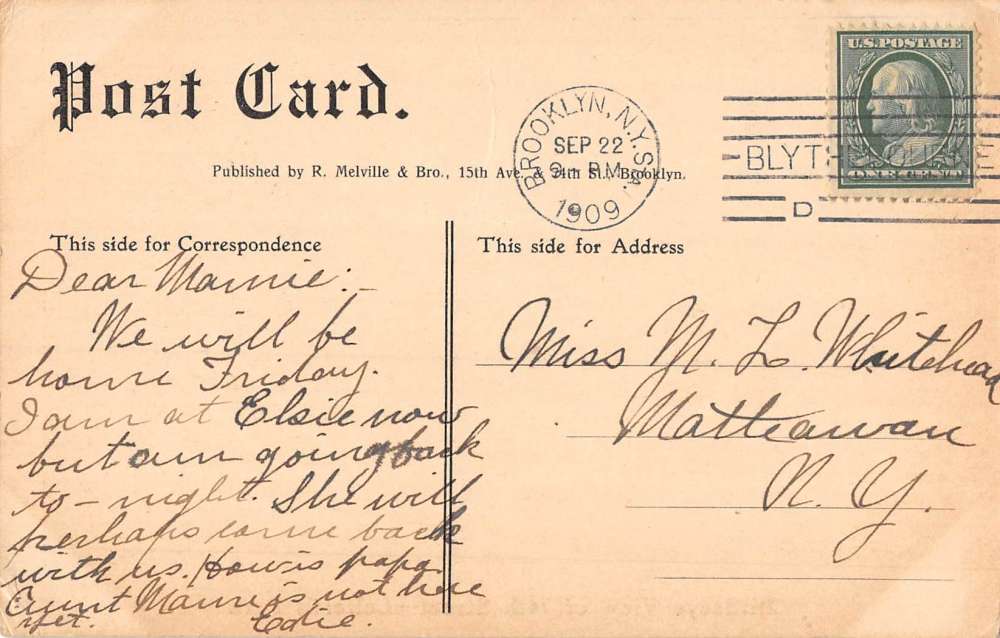 Post Card.
U.S. POSTAGE
ONE CENT
BROOKLYN, N.Y. STA.
SEP 22
9 - PM
1909
BLYTHEBOURNE
D
Published by R. Melville & Bro., 15th Ave. & 74th St., Brooklyn.
This side for Correspondence
This side for Address
Dear Mamie:-
We will be
home Friday.
I am at Elsie now
but am going back
to-night. She will
perhaps come back
with us. How is papa
Aunt Mame is not here
yet. Edie.
Miss M. L. Whitehead
Matteawan
N. Y.